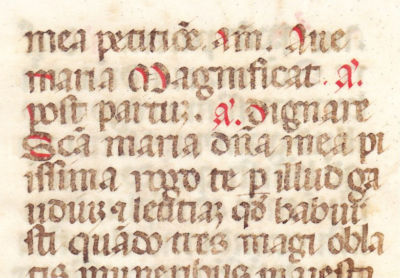 mea petitiōe. am̄. Aue
maria Magnificat. A.
post partuȝ. A. Dignare
Scā maria dn̄a mea pi
issima rogo te ꝑ illud ga
uduȝ ⁊ letitiaȝ qḋ habui
sti quādo tres magi obla
tis muneribus